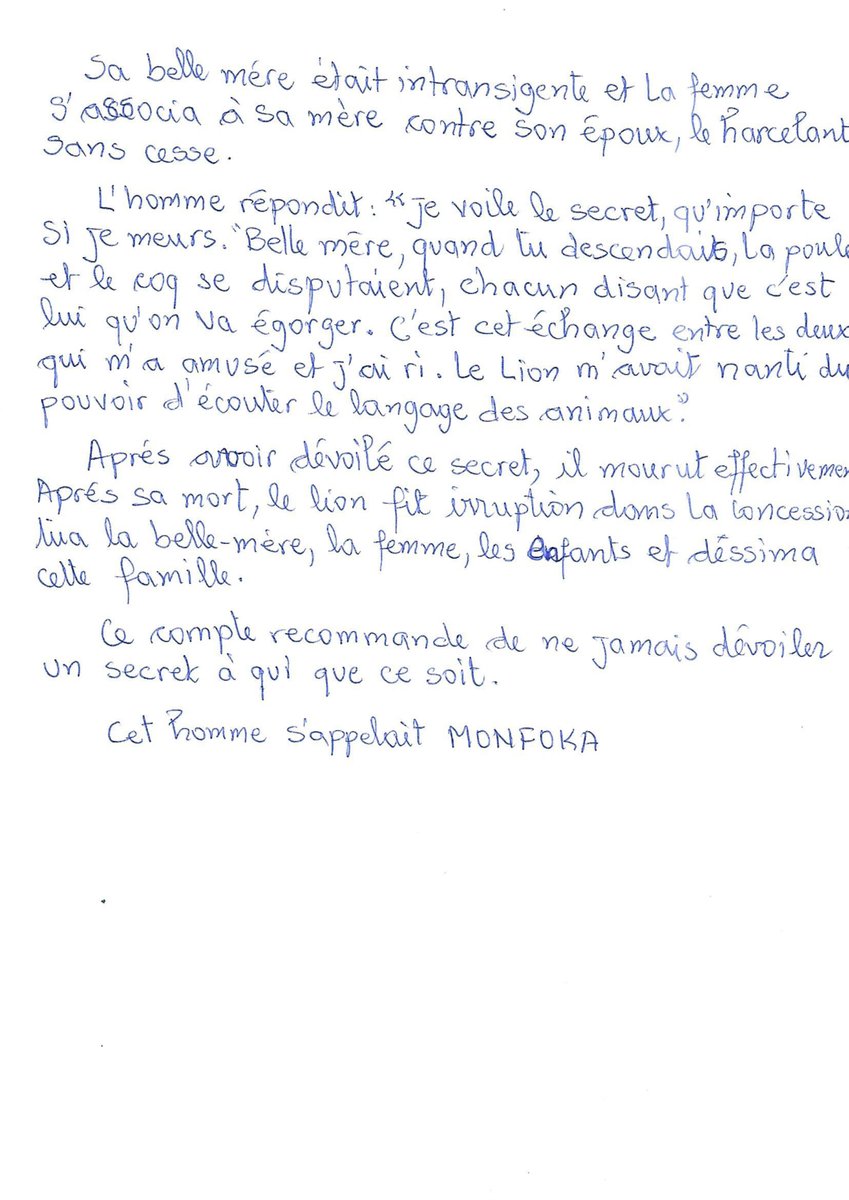 Sa belle mére était intransigente et La femme
s'associa à sa mère contre son époux, le harcelant
sans cesse.
L'homme répondit : "je voile le secret, qu'importe
si je meurs. "Belle mère, quand tu descendais, La poule
et le coq se disputaient, chacun disant que c'est
lui qu'on va égorger. C'est cet échange entre les deux
qui m'a amusé et j'ai ri. Le Lion m'avait nanti du
pouvoir d'écouter le langage des animaux."
Aprés avoir dévoilé ce secret, il mourut effectivemen
Aprés sa mort, le lion fit irruption dans La concessio
tua la belle-mère, la femme, les enfants et déssima
cette famille.
Ce compte recommande de ne jamais dévoiler
un secret à qui que ce soit.
Cet homme s'appelait MONFOKA